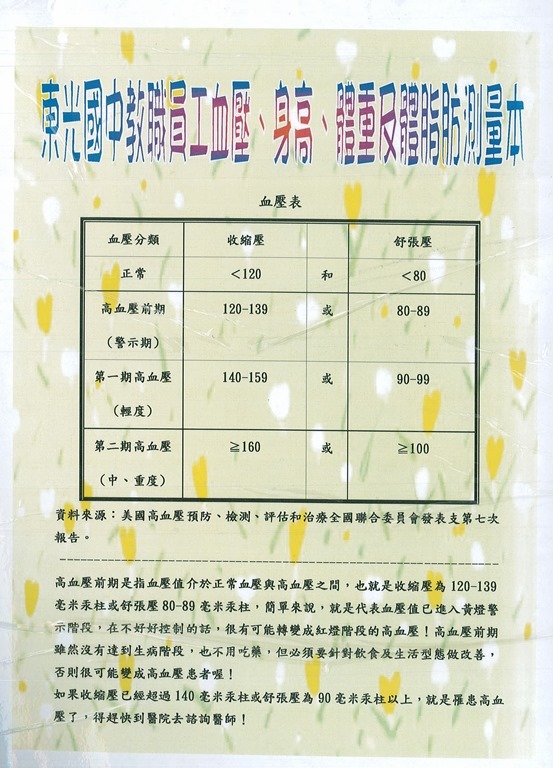 東光國中教職員工血壓、身高、體重及體脂肪測量本
血壓表
血壓分類 收縮壓 舒張壓
正常 <120 和 <80
高血壓前期 120-139 或 80-89
(警示期)
第一期高血壓 140-159 或 90-99
(輕度)
第二期高血壓 ≧160 或 ≧100
(中、重度)
資料來源：美國高血壓預防、檢測、評估和治療全國聯合委員會發表支第七次
報告。
高血壓前期是指血壓值介於正常血壓與高血壓之間，也就是收縮壓為 120-139
毫米汞柱或舒張壓 80-89 毫米汞柱，簡單來說，就是代表血壓值已進入黃燈警
示階段，在不好好控制的話，很有可能轉變成紅燈階段的高血壓！高血壓前期
雖然沒有達到生病階段，也不用吃藥，但必須要針對飲食及生活型態做改善，
否則很可能變成高血壓患者喔！
如果收縮壓已經超過 140 毫米汞柱或舒張壓為 90 毫米汞柱以上，就是罹患高血
壓了，得趕快到醫院去諮詢醫師！